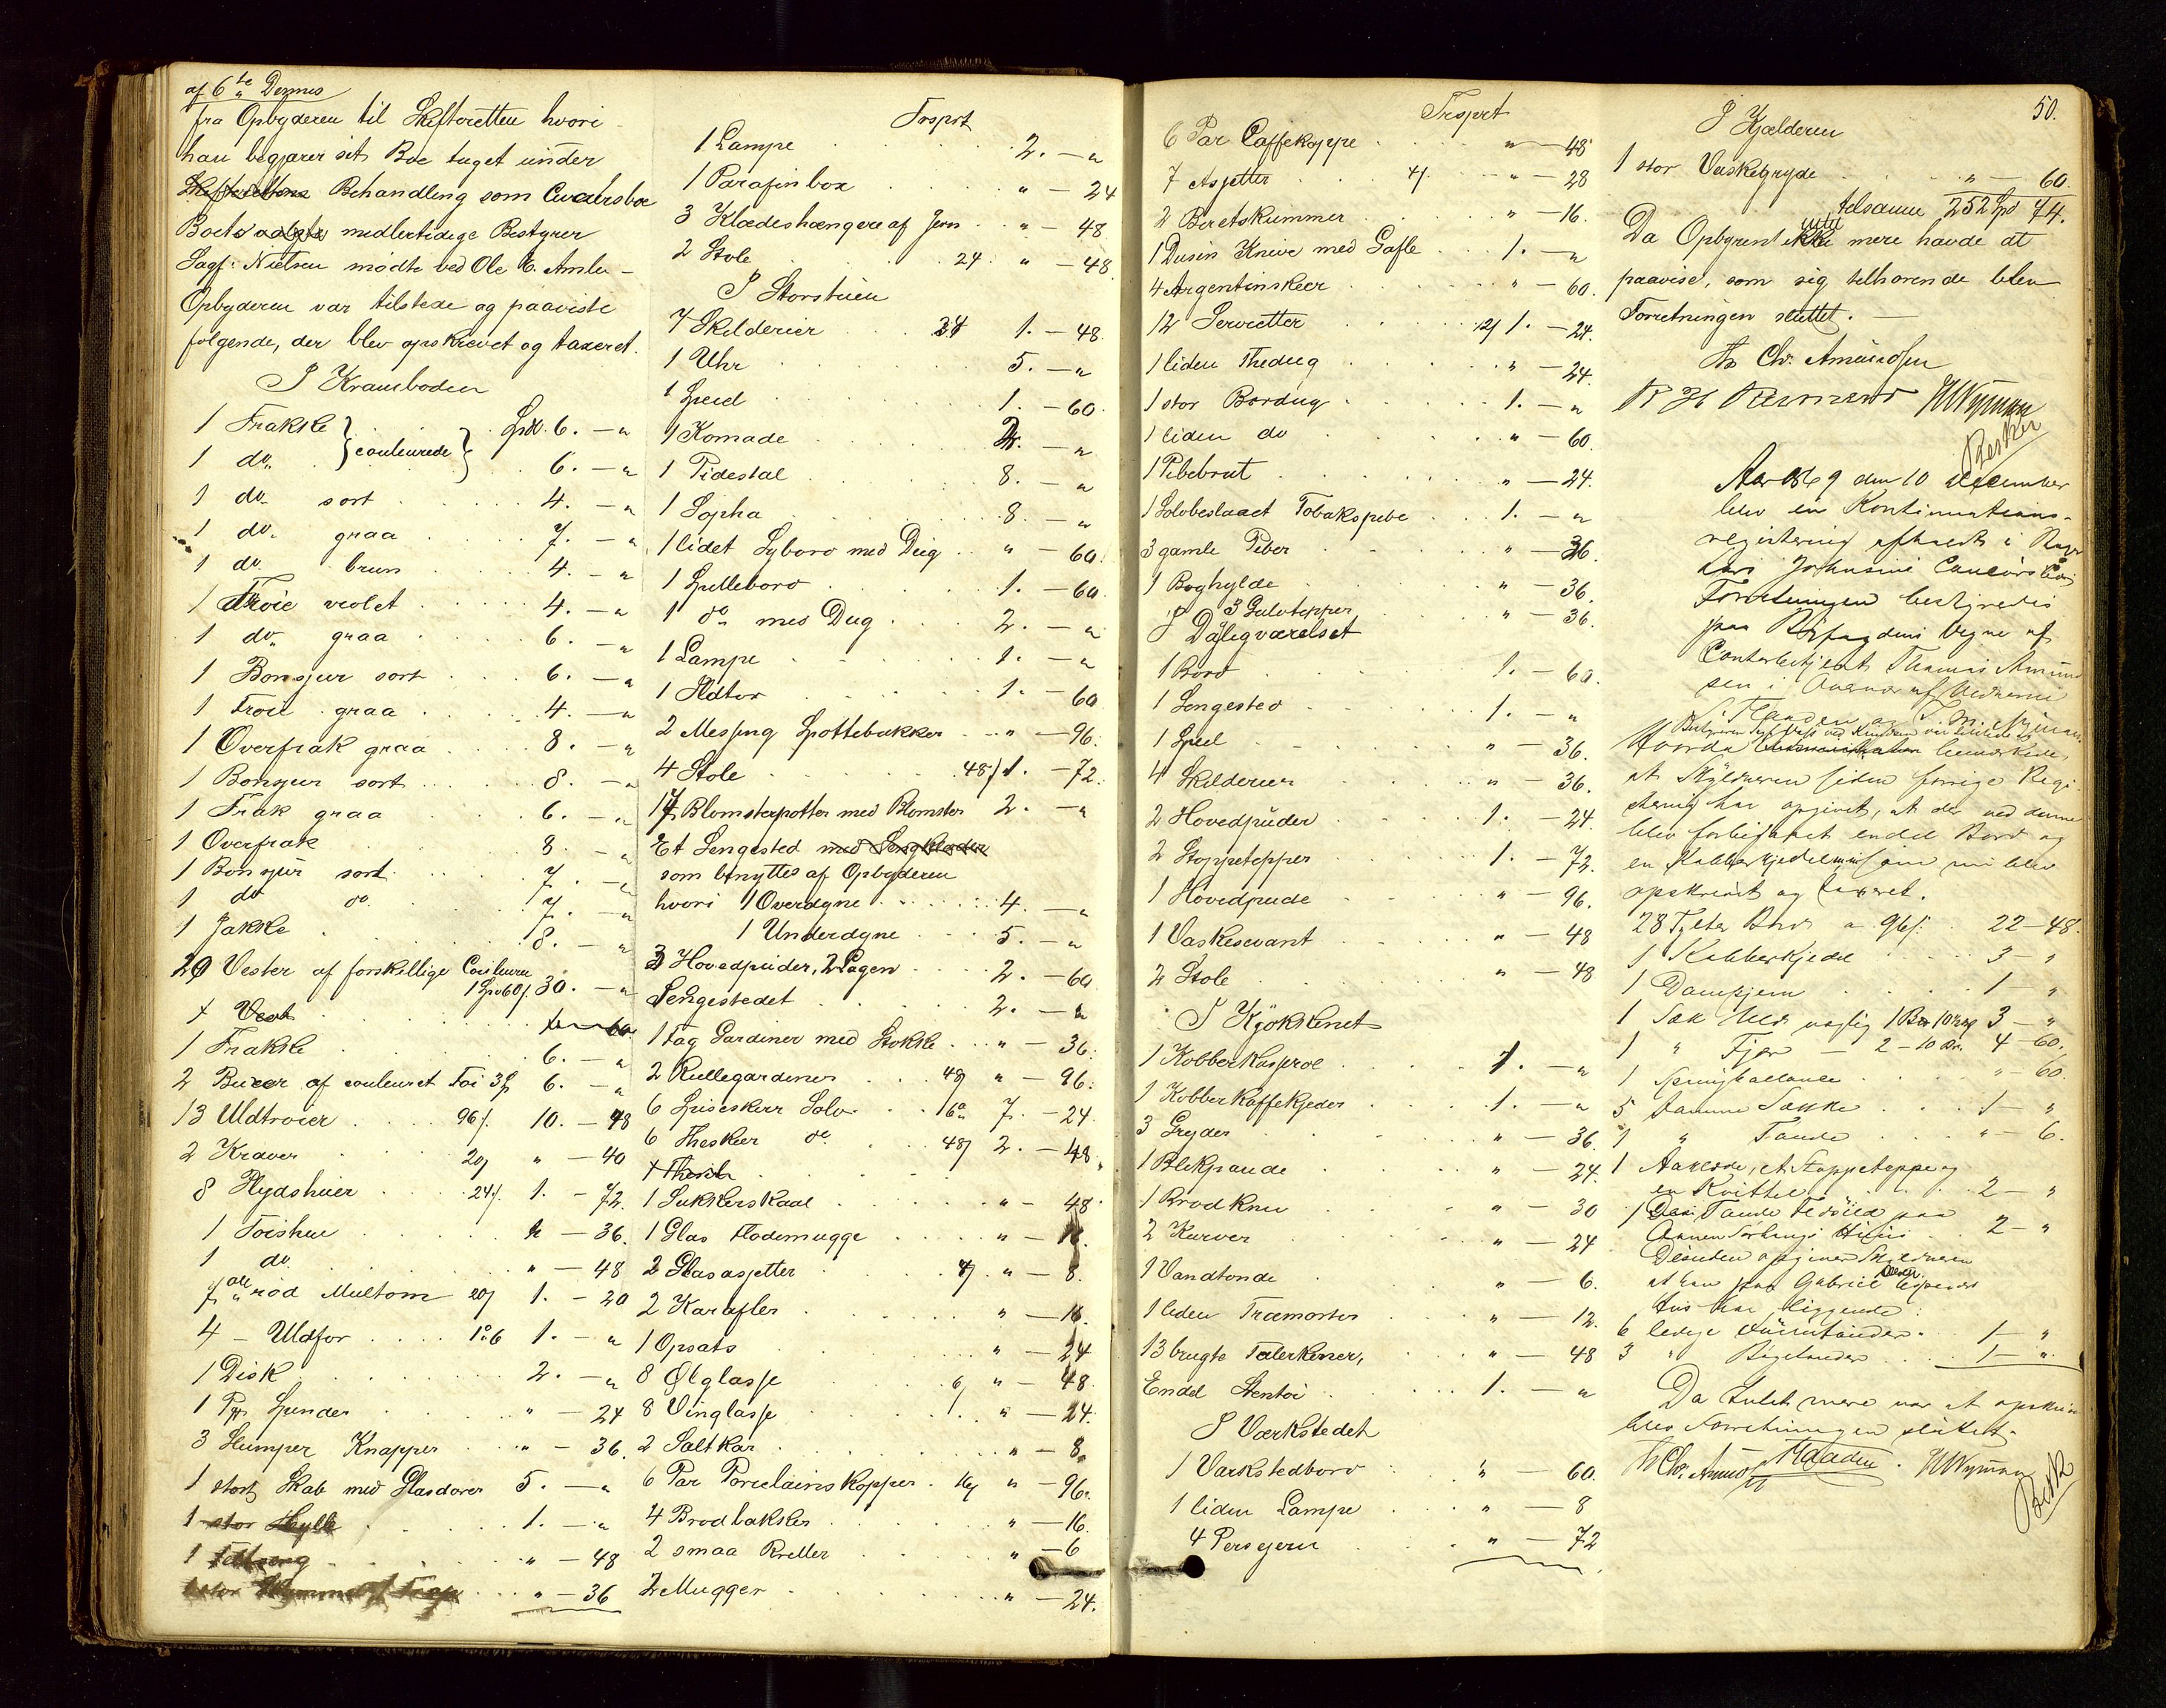 af 6te Dennes
fra Opbyderen til Skifteretten hvori
han begjærer sit Boe taget under
Skifterettens Behandling som Concursboe
Boets valgte midlertidige Bestyrer
Sagf: Nielsen mødte ved Ole C.
Opbyderen var tilstede og paaviste
følgende, der blev opskrevet og taxeret.
I Kramboden
1 Frakke } couleurede } Spd. 6. — "
1 do. 6. — "
1 do. sort 4. — "
1 do. graa 7. — "
1 do. brun 4. — "
1 Trøie violet 4. — "
1 do. graa 6. — "
1 Bonsjur sort 6. — "
1 Trøie graa 4. — "
1 Overfrak graa 8. — "
1 Bonsjur sort 8. — "
1 Frak graa 6. — "
1 Overfrak 8. — "
1 Bonsjur sort 7. — "
1 do do 7. — "
1 Jakke 8. — "
20 Vester af forskellige Couleurer
1 Spd 60/ 30. — "
1 Vest
1 Frakke 6. — "
2 Buxer af couleuret Tøi 3 Sp 6. — "
13 Uldtrøier 96/ 10. — 48
2 Kraver 20/ " — 40
8 Flydshuer 24/ 1. — 72.
1 Tøishue " — 36.
1 do. " — 48
7 all rød Multom 20/ 1. — 20
4 — Uldfor 1 6 1. — "
1 Disk 2. — "
1 Spender " — 24
3 Slumper Knapper " — 36.
1 stort Skab med Glasdører 5. — "
1 stor Hylle 1. — "
1 " — 48
1 stor " — 36
Trsprt
1 Lampe 2. — "
1 Parafinbox " — 24
3 Klædeshængere af Jern " — 48
2 Stole 24 " — 48
I Storstuen
7 Skilderier 24 1. — 48.
1 Uhr 5. — "
1 Speil 1. — 60.
1 Komade 2. — "
1 Pidestal 8. — "
1 Sopha 8. — "
1 lidet Sybord med Dug " — 60
1 Spillebord 1. — 60
1 do med Dug 2. — "
1 Lampe 1. — "
1 Ildtor 1. — 60
2 Messing Spottebakker " — 96.
4 Stole 48/ 1. — 72.
17 Blomsterpotter med Blomster 2. — "
Et Sengested med Sengklæder
som benyttes af Opbyderen
hvori 1 Overdyne 4. — "
1 Underdyne 5. — "
3 Hovedpuder, 2 Lagen 2. — 60
Sengestedet 2. — "
1 Fag Gardiner med Stokke " — 36.
2 Rullegardiner 48/ " — 96.
6 Spiseskeer Sølv 7. — 24.
6 Theskeer do 48/ 2. — 48
1 Sukkerskaal " — 48
1 Glas Flødemugge " — 16.
2 Glasasjetter 4/ " — 8.
2 Karafler " — 16.
1 Opsats " — 24
8 Ølglasse 6/ " — 48
8 Vinglasse " — 24.
2 Saltkar " — 8.
6 Par Porcelains Kopper 16/ " — 96.
4 Brødbakker " — 16.
2 smaa Breller " — 6
2 Mugger " — 24.
Trsprt
6 Par Caffekoppe " — 48
7 Asjetter 4/ " — 28
2 Beretskummer " — 16.
1 Dusin Knive med Gafle 1. — "
4 Argentinskeer " — 60.
12 Servietter 12/ 1. — 24.
1 liden Thedug " — 24
1 stor Bordug 1. — "
1 liden do " — 60.
1 Pibebrut " — 24.
1 Sølvbeslaaet Tobakspibe 1. — "
3 gamle Piber " — 36.
1 Boghylde " — 36.
3 Gulvtepper " — 36.
I Dagligværelset
1 Bord 1. — 60.
1 Sengested 1. — "
1 Speil " — 36.
4 Skilderier " — 36.
2 Hovedpuder 1. — 24.
2 Stoppetepper 1. — 72.
1 Hovedpude " — 96.
1 Vaskeservant " — 48
2 Stole " — 48
I Kjøkkenet
1 Kobberkasserol 1. — "
1 Kobberkaffekjedel 1. — "
3 Gryder " — 36.
1 Blikpande " — 24.
1 Brødkniv " — 30
2 Kurver " — 24
1 Vandtønde " — 6.
1 liden Træmorter " — 12.
13 brugte Talerkener, " — 48
Endel Stentøi 1. — "
I Værkstedet
1 Værkstedbord " — 60.
1 liden Lampe " — 8
4 Persejern " — 72
50.
I Kjælderen
1 stor Vaskegryde " — 60.
tilsamm 252 Spd 74.
Da Opbyderen ikke mere havde at
paavise, som sig tilhørende blev
Forretningen sluttet. —
Th Chr. Amundsen
HNyman
Aar 1869 den 10 December
blev en Kontinuations-
registering afholdt i
Johnsens Concursbo
Forretningen bestyredes
paa Byfogdens Vegne af
Contorbetjent Thomas Amund
sen i Overvær af Vidnerne
bemærkede,
at Skyldneren siden forrige Regi
stering har opgivet, at der ved denne
blev forbigaaet endel Bord og
en Kobberkjedel som nu blev
opskrevet og taxeret.
28 Tylter Bord a 96/ 22 — 48.
1 Kobberkjedel 3 — "
1 1 — "
1 Sæk Uld vægtig 1 Bp 10 3 — "
1 " Fjær — 2 — 10 4 — 60.
1 " — 60.
5 tomme Sække 1 — "
1 " Tønde " — 6.
1 Aaklæde, et Stoppeteppe og
en Kvittel 2 — "
1 Tønde paa
2 — "
Desuden opgiver Skyldneren
at han paa Gabriel
Hus har liggende:
6 ledige 1 — "
3 " 1 — "
Da Intet mere var at opskrive
blev Forretningen sluttet.
Th Chr. Amundsen HNyman